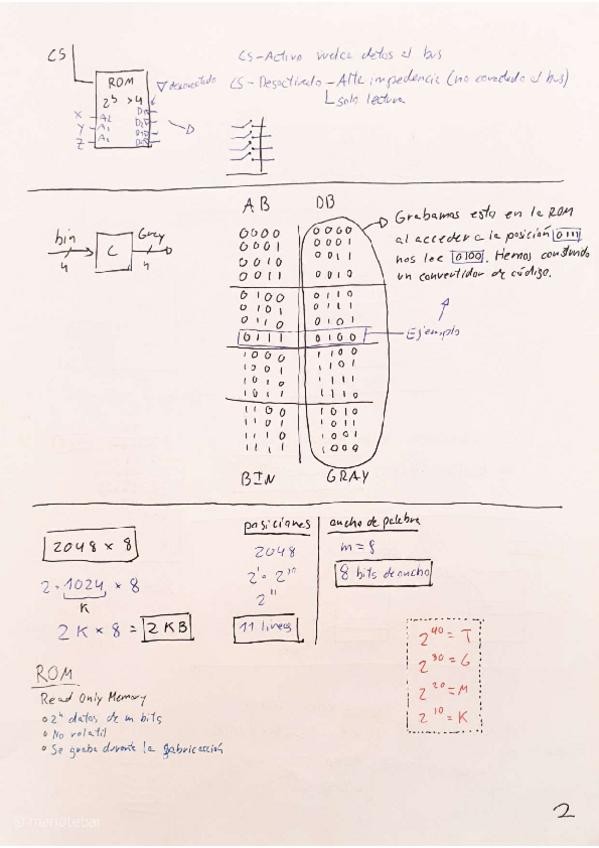 CS
ROM
2³ x4
X A2
Y A1
Z A0
D3
D2
D1
D0
desconectado
CS-Activo vuelca datos al bus
CS-Desactivado-Alta impedencia (no conectado al bus)
solo lectura
bin
4
C
Gray
4
AB DB
0000 0000
0001 0001
0010 0011
0011 0010
0100 0110
0101 0111
0110 0101
0111 0100
1000 1100
1001 1101
1010 1111
1011 1110
1100 1010
1101 1011
1110 1001
1111 1000
BIN GRAY
Grabamos esto en la ROM
al acceder a la posición 0111
nos lee 0100. Hemos construido
un convertidor de código.
Ejemplo
2048 x 8
2 · 1024 x 8
K
2K x 8 = 2KB
posiciones
2048
2¹ · 2¹⁰
2¹¹
11 lineas
ancho de palabra
m = 8
8 bits de ancho
2⁴⁰ = T
2³⁰ = G
2²⁰ = M
2¹⁰ = K
ROM
Read Only Memory
2ⁿ datos de m bits
No volatil
Se graba durante la fabricación
2